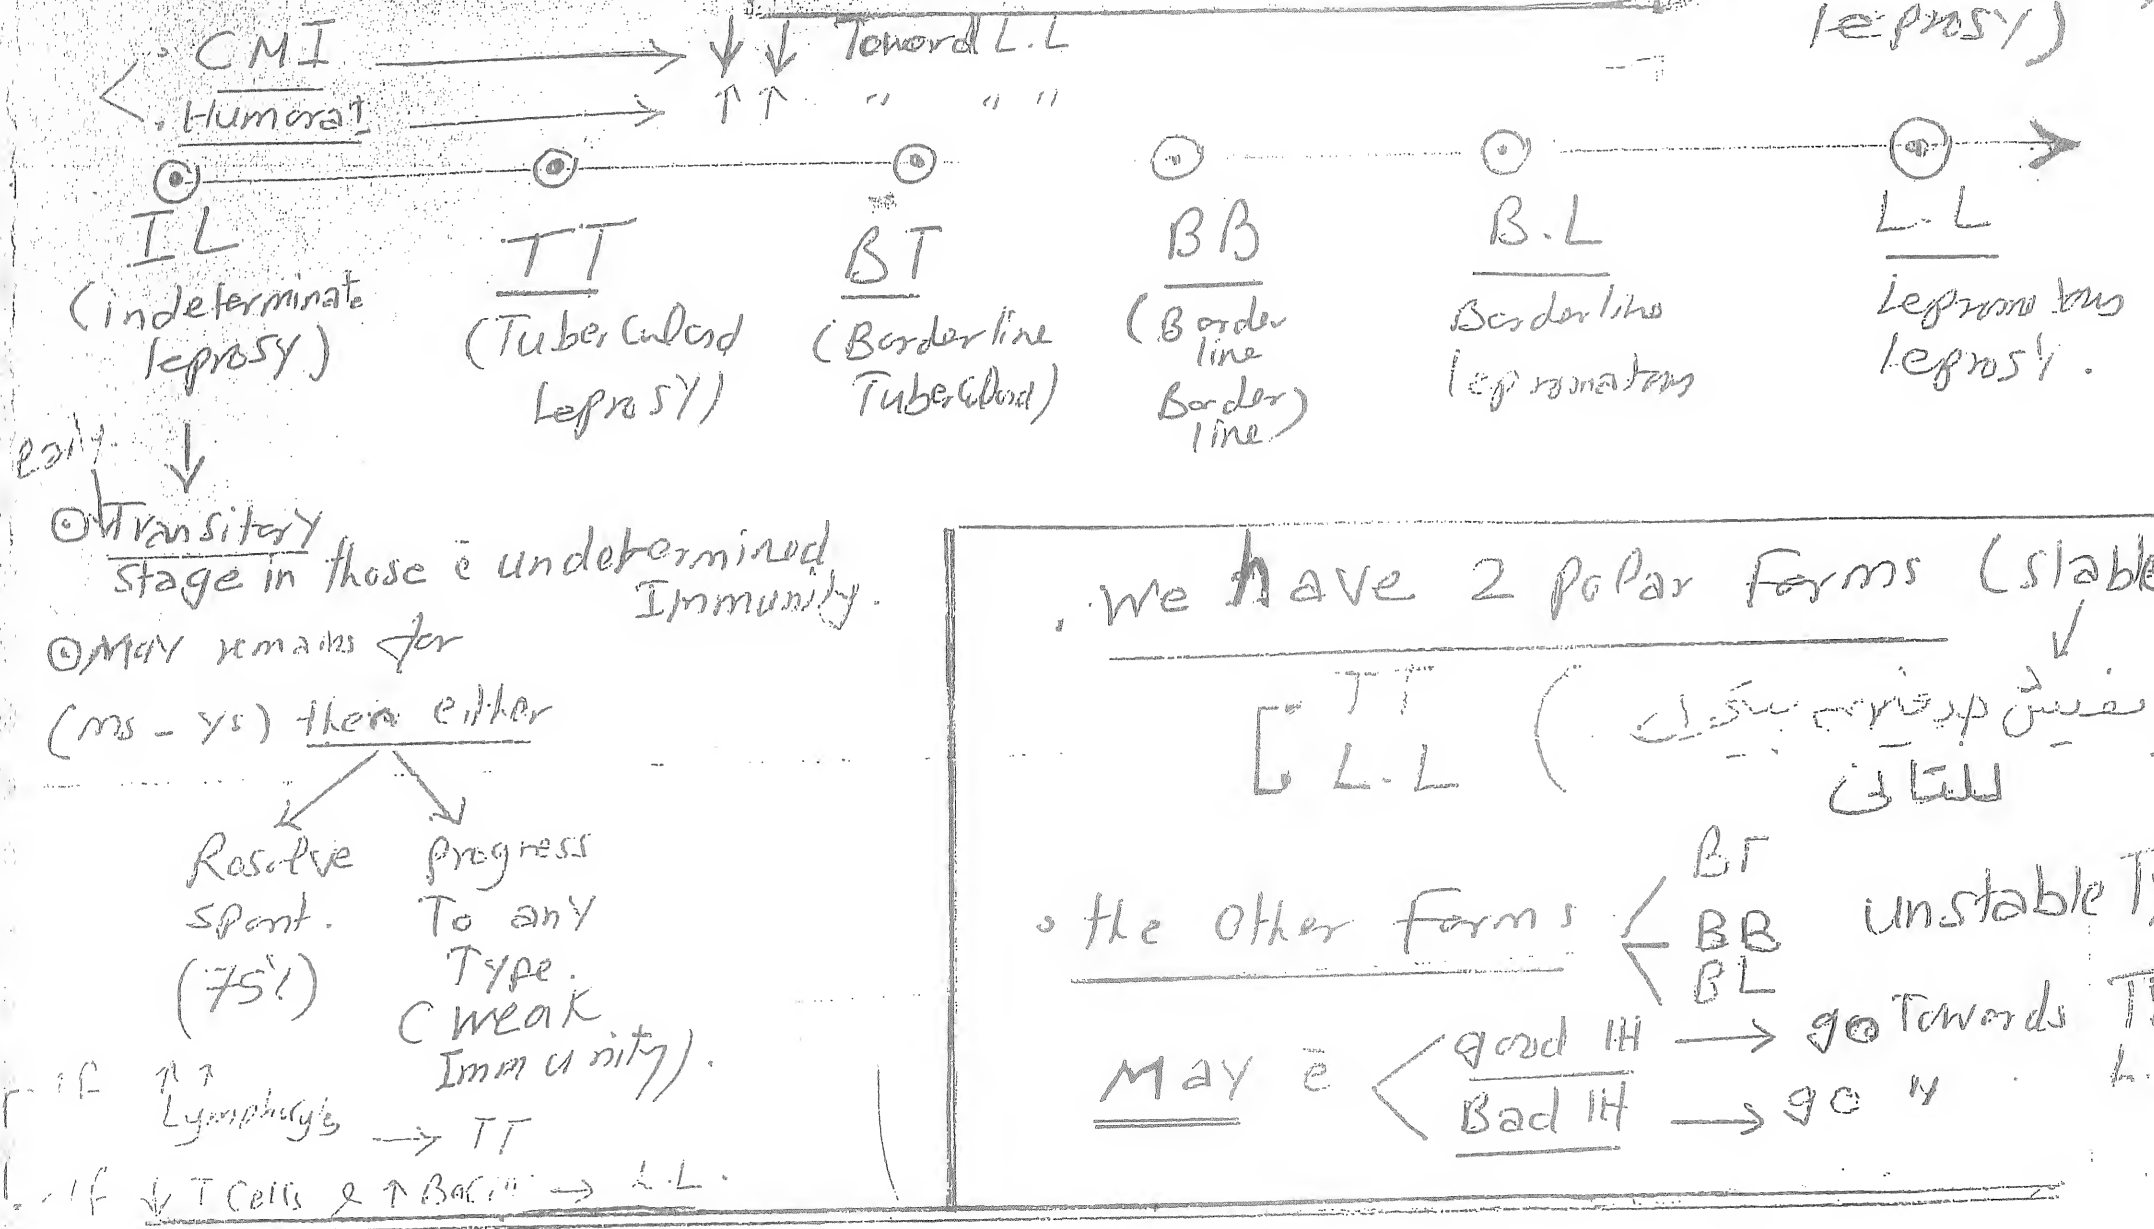 leprosy)
CMI → ↓↓ Toward L.L
Humoral → ↑↑ " " "
IL TT BT BB B.L L.L
(indeterminate leprosy)
(Tuberculoid Leprosy)
(Borderline Tuberculoid)
(Border line Border line)
Borderline lepromatous
Lepromatous leprosy.
early
Transitory
stage in those c̄ undetermined
Immunity.
May remains for
(ms - ys) then either
Resolve
spont.
(75%)
progress
To any
Type.
(weak
Immunity).
- if ↑↑
Lymphocytes → TT
- If ↓ T Cells & ↑ Bacilli → L.L.
. We have 2 polar forms (stable
TT
L.L
للتانى
. the other forms
BT
BB
BL
unstable
May c̄
good IH → go Towards
Bad IH → go "